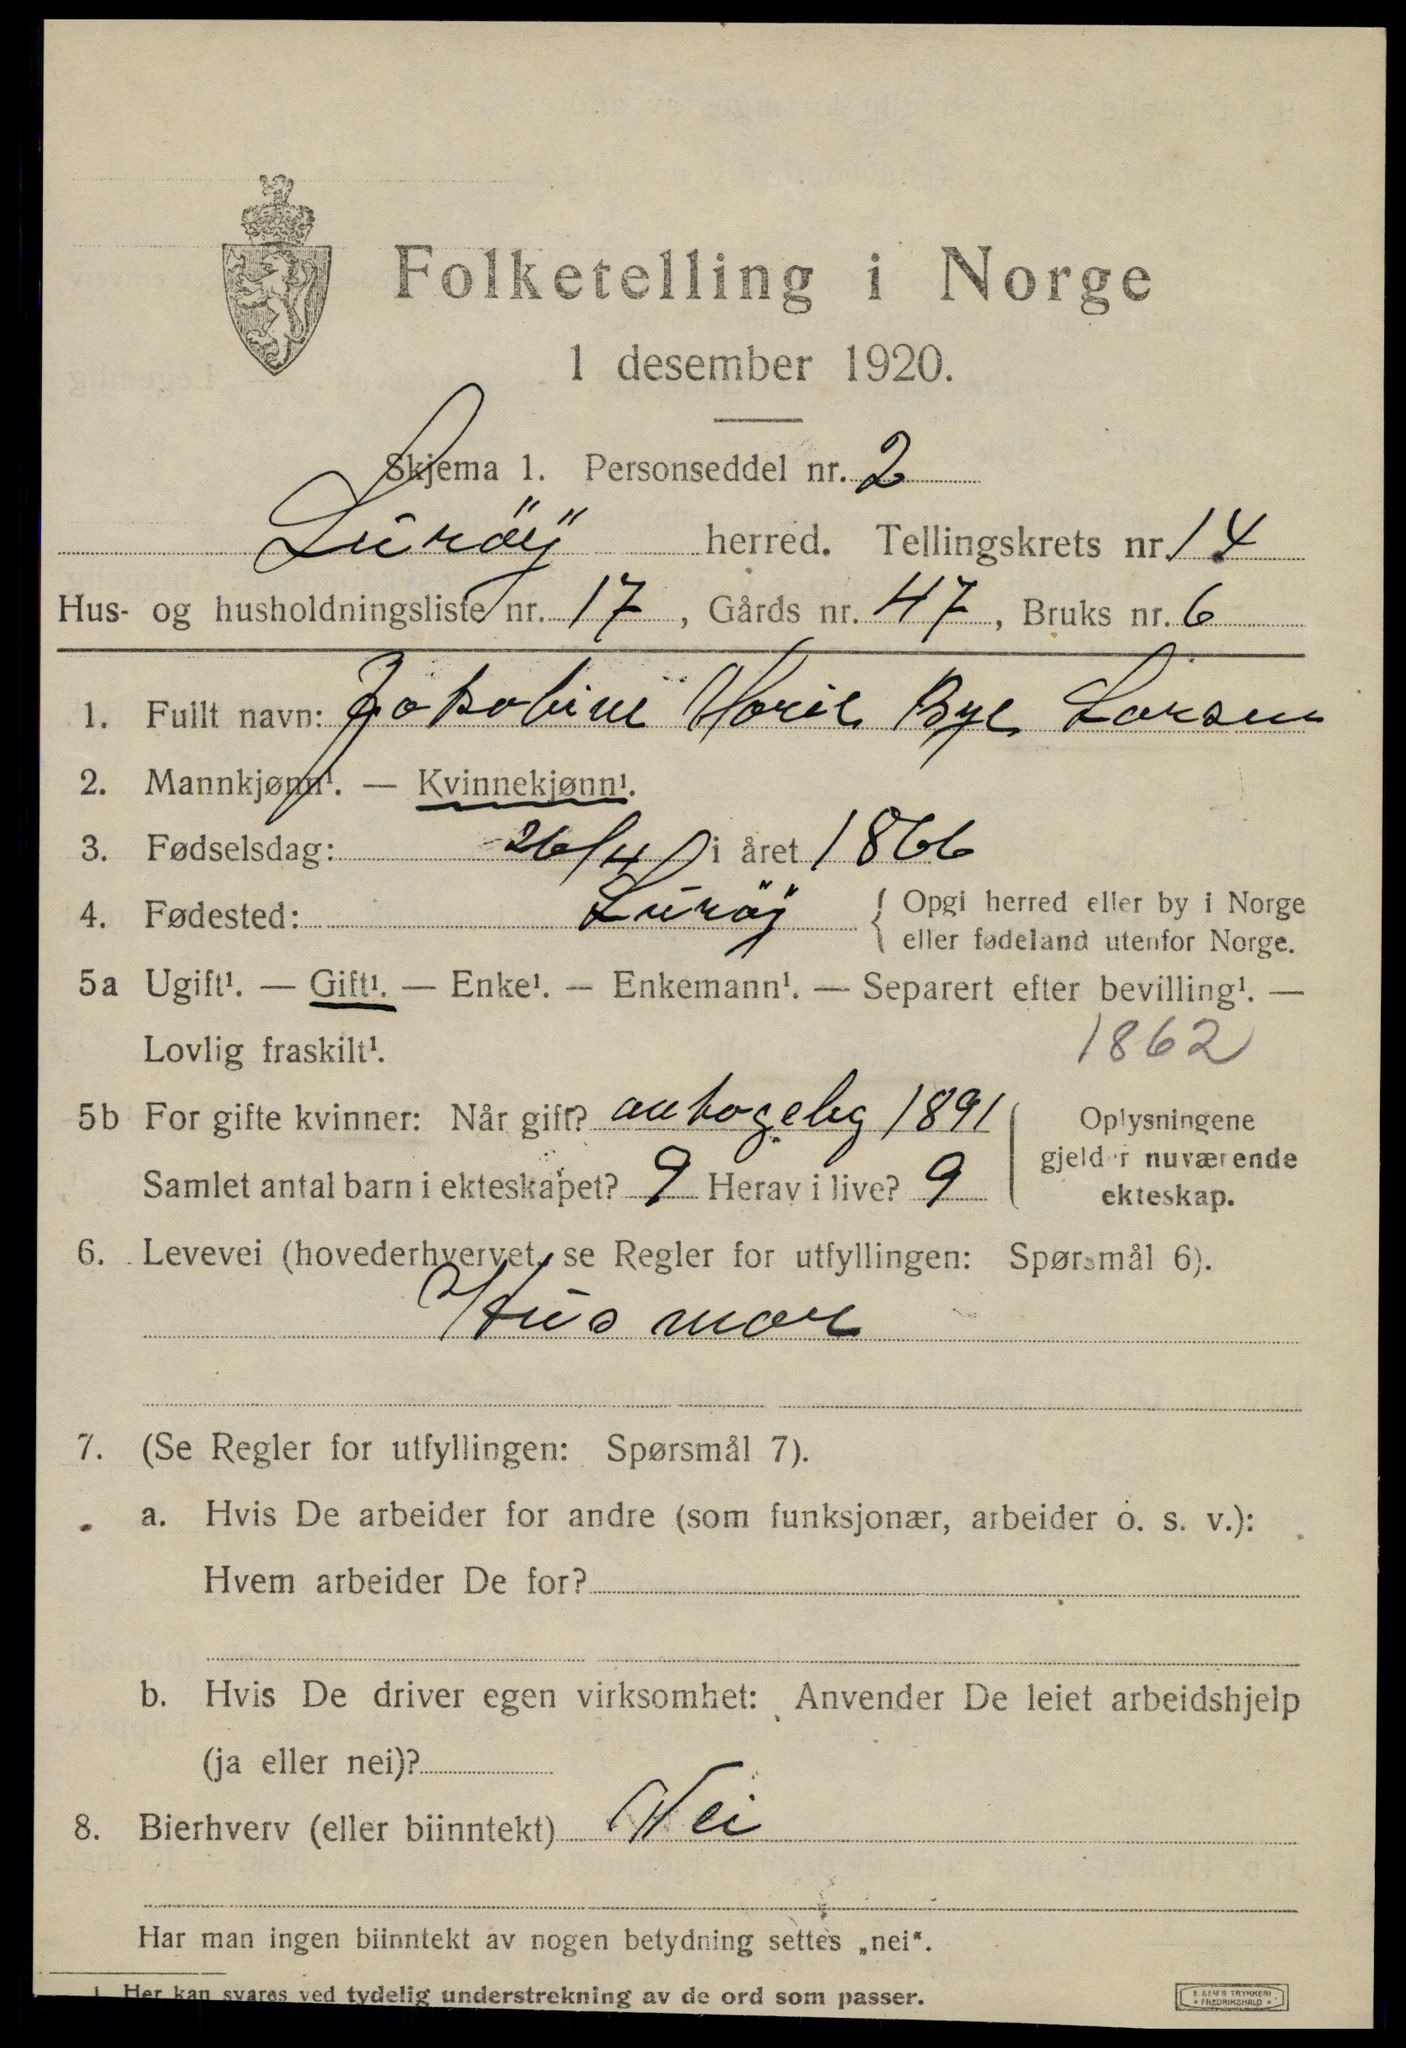 Folketelling i Norge
1 desember 1920.
Skjema 1. Personseddel nr. 2
Lurøy herred. Tellingskrets nr. 14
Hus- og husholdningsliste nr. 17, Gårds nr. 47, Bruks nr. 6
1. Fullt navn: Jakobine Marie Bye Larsen
2. Mannkjønn¹. — Kvinnekjønn¹.
3. Fødselsdag: 26/4 i året 1866
4. Fødested: Lurøy { Opgi herred eller by i Norge
eller fødeland utenfor Norge.
5a Ugift¹. — Gift¹. — Enke¹. — Enkemann¹. — Separert efter bevilling¹. —
Lovlig fraskilt¹. 1862
5b For gifte kvinner: Når gift? antagelig 1891
Samlet antal barn i ekteskapet? 9 Herav i live? 9
Oplysningene
gjelder nuværende
ekteskap.
6. Levevei (hovederhvervet, se Regler for utfyllingen: Spørsmål 6).
Husmor
7. (Se Regler for utfyllingen: Spørsmål 7).
a. Hvis De arbeider for andre (som funksjonær, arbeider o. s. v.):
Hvem arbeider De for?
b. Hvis De driver egen virksomhet: Anvender De leiet arbeidshjelp
(ja eller nei)?
8. Bierhverv (eller biinntekt) Nei
Har man ingen biinntekt av nogen betydning settes „nei“.
1. Her kan svares ved tydelig understrekning av de ord som passer.
E. SEM'S TRYKKERI
FREDRIKSHALD